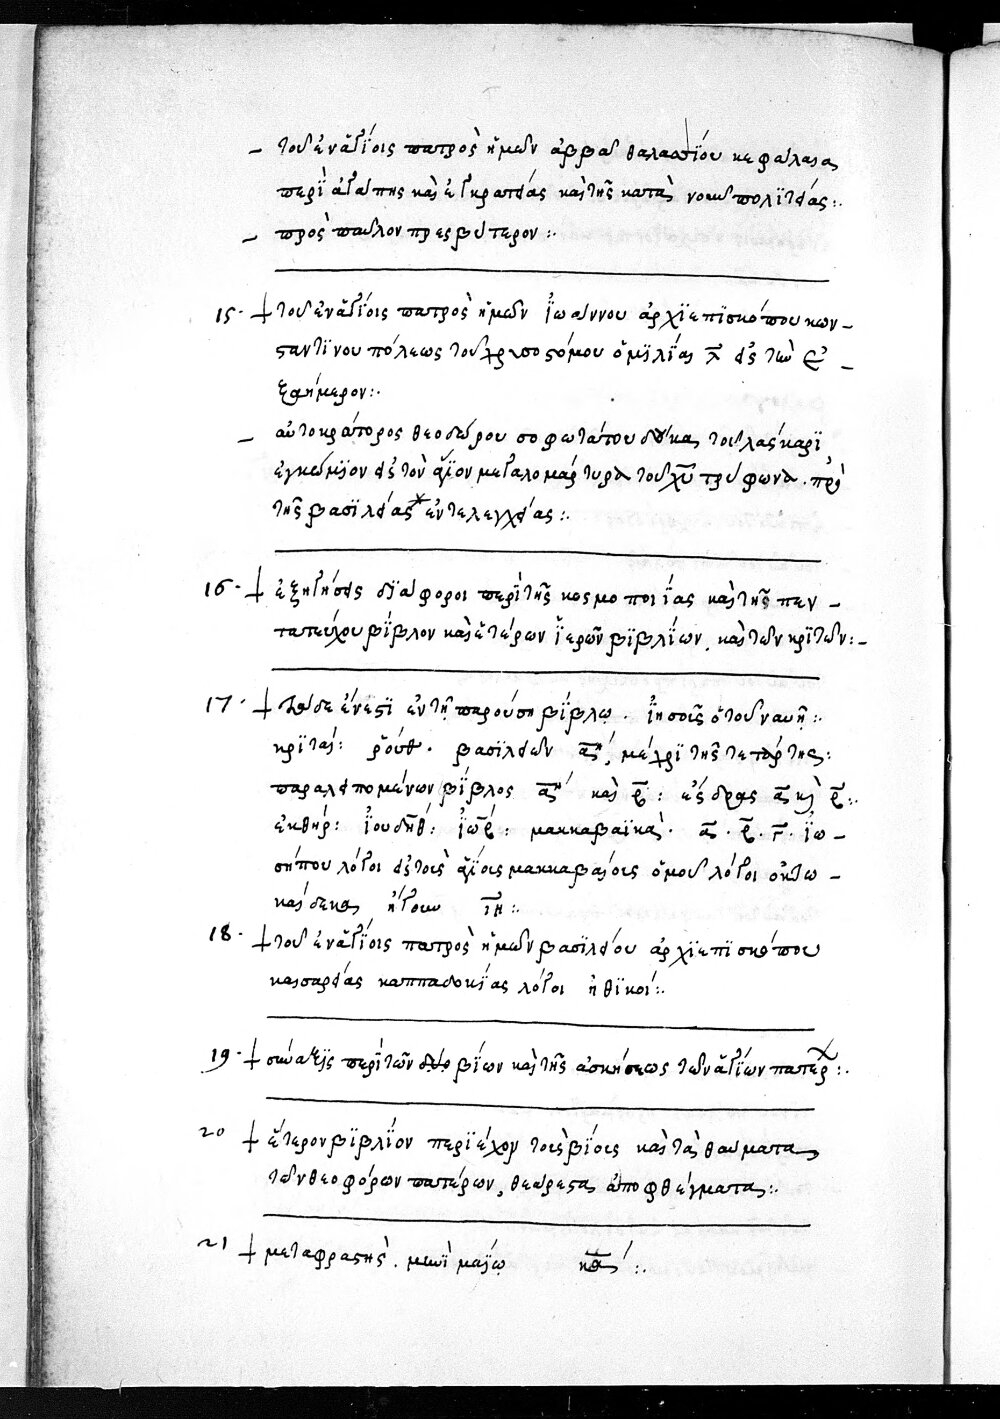 – τοῦ ἐν ἁγίοις πατρὸς ἡμῶν ἀββᾶ θαλασσίου κεφάλαια
περὶ ἀγάπης καὶ ἐγκρατείας καὶ τῆς κατὰ νοῦν πολϊτείας :.
– πρὸς παῦλον πρεσβύτερον :.
15. + τοῦ ἐν ἁγίοις πατρὸς ἡμῶν ϊωάννου ἀρχϊεπϊσκόπου κων–
σταντϊνουπόλεως τοῦ χρυσοστόμου ὁμϊλίαι λ εἰς τὴν
ἑξαήμερον :.
– αὐτοκράτορος θεοδώρου σοφωτάτου δούκα τοῦ λασκάρϊ,
ἐγκώμϊον εἰς τὸν ἅγϊον μεγαλομάρτυρα τοῦ χ̅υ̅ τρύφωνα. πρὸ
τῆς βασϊλείας * ἐντελεχείας :.
16. + ἐξηγήσεις δϊάφοροι περὶ τῆς κοσμοποιΐας καὶ τῆς πεν–
τατεύχου βίβλον καὶ ἑτέρων ϊερῶν βϊβλίων, καὶ τῶν κρϊτῶν :.–
17. + τάδε ἔνεστϊ ἐν τῇ παρούσῃ βίβλῳ. ϊησοῦς ὁ τοῦ ναυῆ :.
κρϊταί : ῥούθ. βασϊλειῶν α̅η, μέχρϊ τῆς τετάρτης :
παραλειπομένων βίβλος α̅η καὶ β̅ : ἔσδρας α̅ καὶ β̅ :.
ἐσθήρ : ϊουδήθ : ϊωβ : μακκαβαϊκὰ. α̅. β̅. γ̅. ϊω–
σήπου λόγοι εἰς τοὺς ἁγίους μακκαβαίους ὁμοῦ λόγοι ὀκτω–
καίδεκα ἤγουν ι̅η̅ :.
18. + τοῦ ἐν ἁγίοις πατρὸς ἡμῶν βασϊλείου ἀρχϊεπϊσκόπου
καισαρείας καππαδοκίας λόγοι ἠθϊκοί :.
19. + σύναξϊς περὶ τῶν βίων καὶ τῆς ἀσκήσεως τῶν ἁγίων πατέρ :.
20 + ἕτερον βϊβλίον περϊέχον τοὺς βίους καὶ τὰ θαύματα
τῶν θεοφόρων πατέρων, θεάρεστα ἀποφθέγματα :.
21 + μεταφραστὴς. μηνὶ μαΐῳ